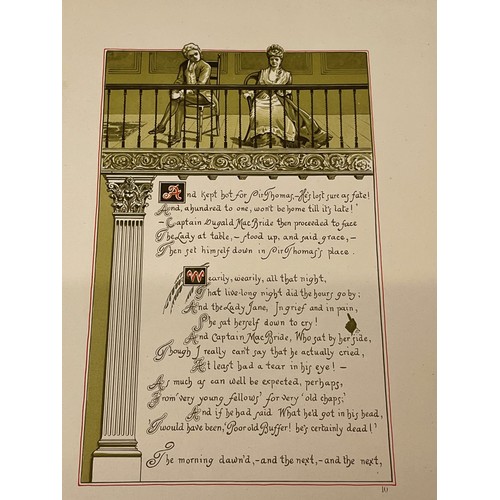 And kept hot for Sir Thomas,—He's lost sure as fate!
And, a hundred to one, won't be home till it's late!'
—Captain Dugald MacBride then proceeded to face
The Lady at table,—stood up, and said grace,—
Then set himself down in Sir Thomas's place.
Wearily, wearily, all that night,
That live-long night did the hours go by;
And the Lady Jane, In grief and in pain,
She sat herself down to cry!
And Captain MacBride, Who sat by her side,
Though I really can't say that he actually cried,
At least had a tear in his eye!—
As much as can well be expected, perhaps,
From 'very young fellows' for very 'old chaps;'
And if he had said What he'd got in his head,
'Twould have been, 'Poor old Buffer! he's certainly dead!'
The morning dawn'd,—and the next,—and the next,
10